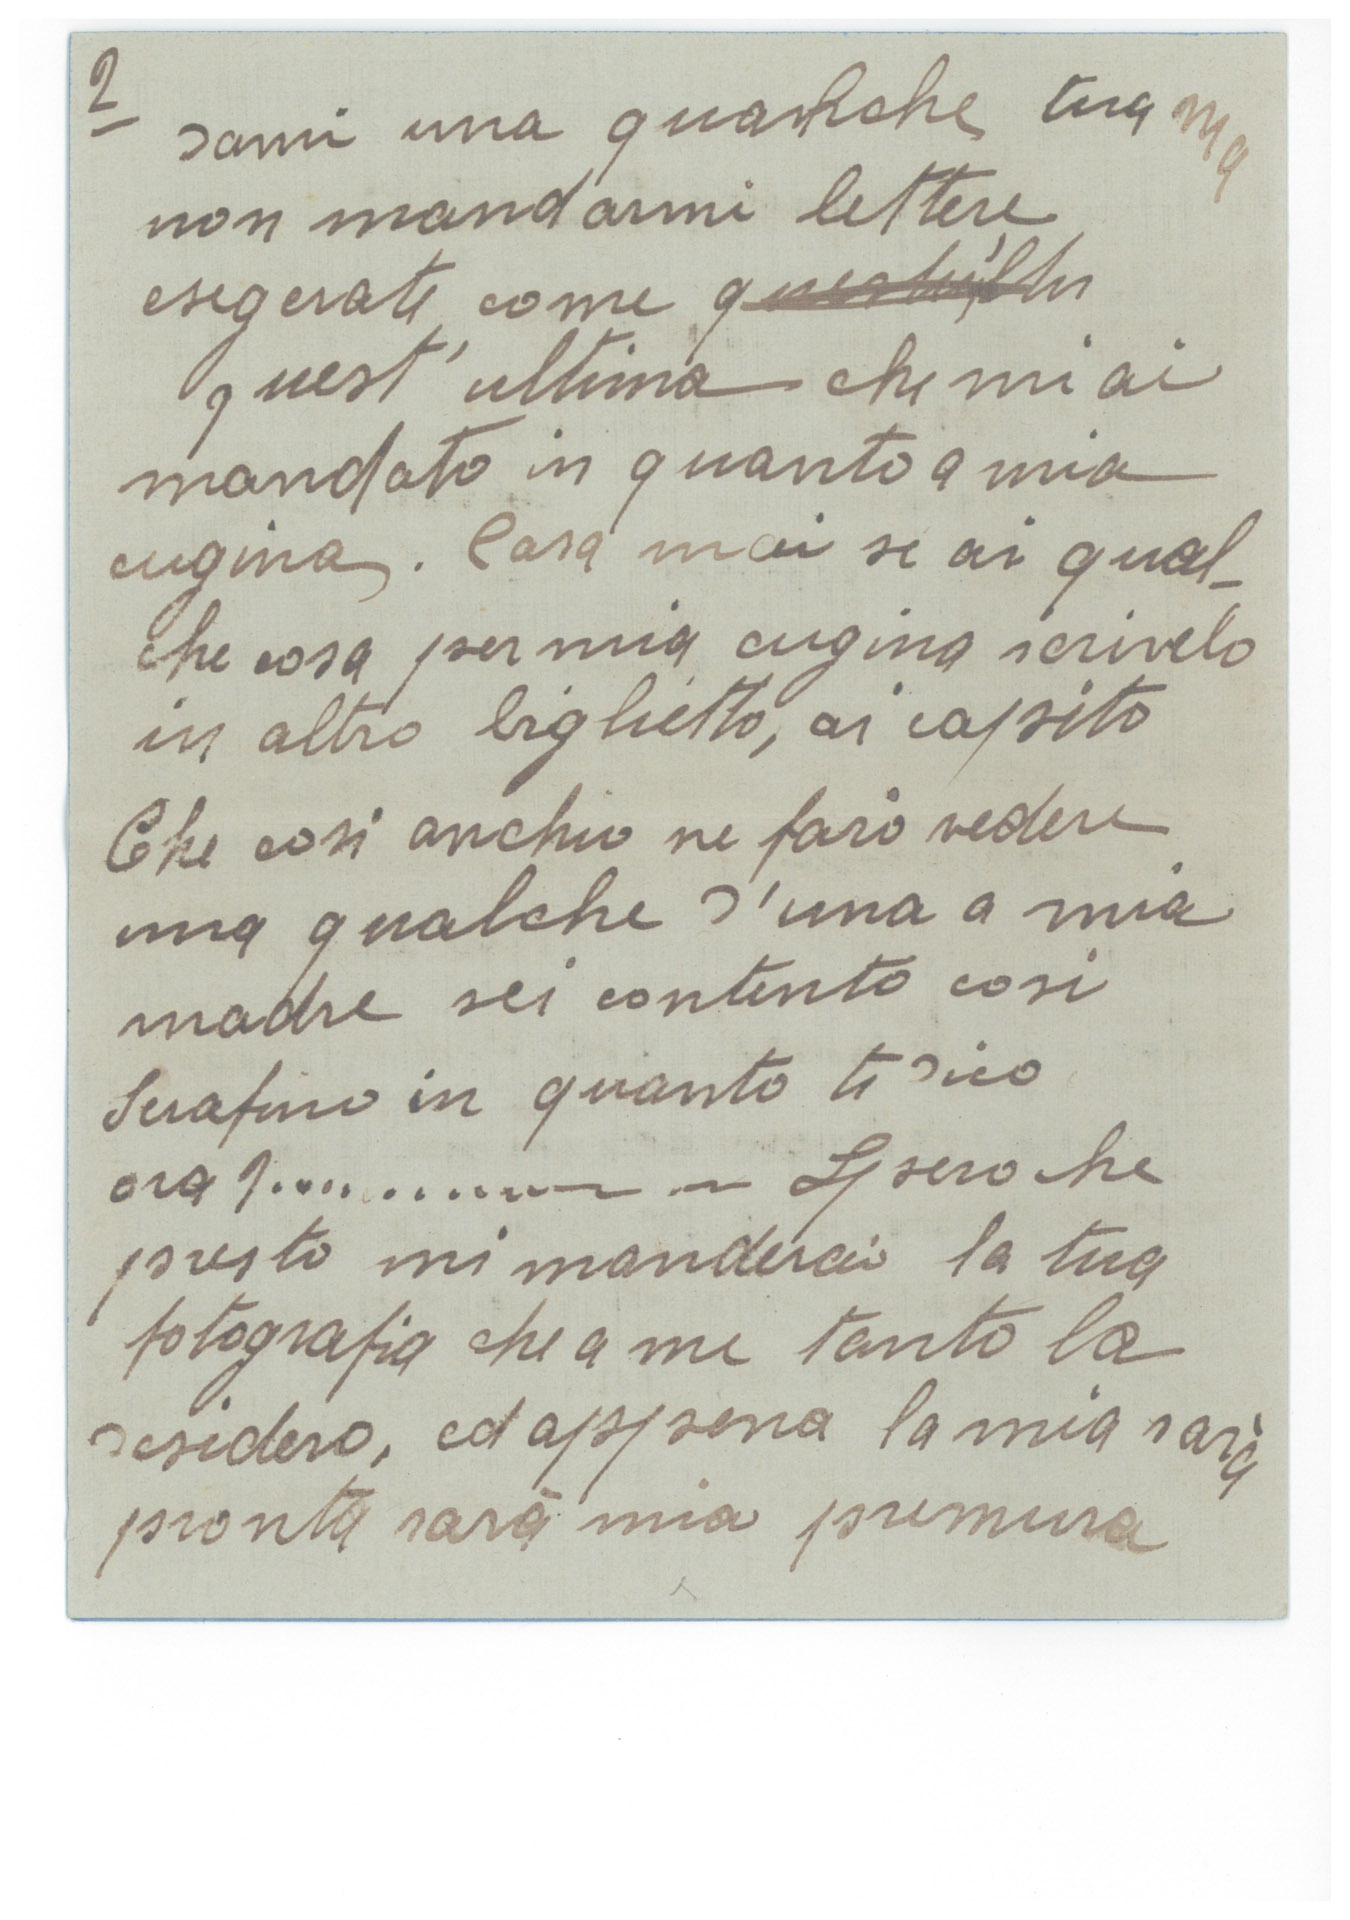 2
dami una qualche tua ma
non mandarmi lettere
esegerate come
quest'ultima che mi ai
mandato in quanto a mia
cugina. Casa mai se ai qual-
che cosa per mia cugina scrivelo
in altro biglietto, ai capito
Che cosi anchio ne faro vedere
una qualche d'una a mia
madre sei contento cosi
Serafino in quanto ti dico
ora ?............ — Spero che
presto mi manderai la tua
fotografia che a me tanto la
desidero, ed appena la mia sarà
pronta sarà mia premura